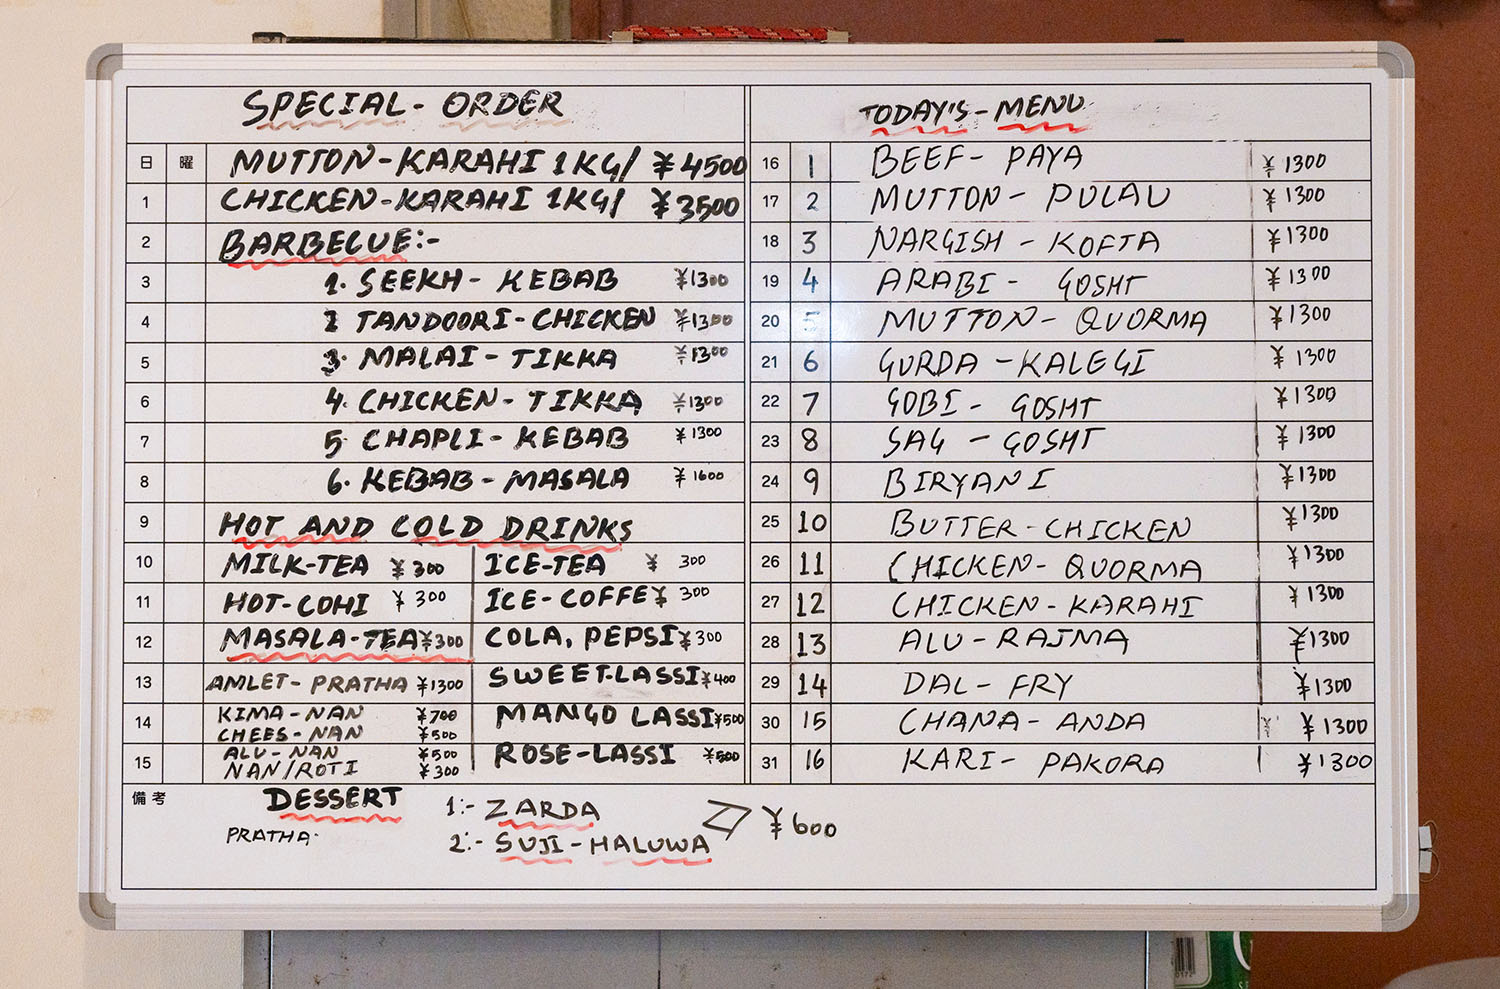 SPECIAL- ORDER
日 曜 MUTTON-KARAHI 1KG/ ¥4500
1 CHICKEN-KARAHI 1KG/ ¥3500
2 BARBECUE:-
3 1. SEEKH- KEBAB ¥1300
4 2 TANDOORI-CHICKEN ¥1300
5 3. MALAI-TIKKA ¥1300
6 4. CHICKEN-TIKKA ¥1300
7 5 CHAPLI-KEBAB ¥1300
8 6. KEBAB-MASALA ¥1600
9 HOT AND COLD DRINKS
10 MILK-TEA ¥300 ICE-TEA ¥ 300
11 HOT-COHI ¥300 ICE-COFFE ¥ 300
12 MASALA-TEA ¥300 COLA, PEPSI ¥300
13 AMLET-PRATHA ¥1300 SWEET-LASSI ¥400
14 KIMA-NAN ¥700 MANGO LASSI ¥500
CHEES-NAN ¥500
15 ALU-NAN ¥500 ROSE-LASSI ¥500
NAN/ROTI ¥300
備考 DESSERT 1:- ZARDA ¥600
PRATHA. 2:- SUJI-HALUWA
TODAY'S-MENU
16 1 BEEF-PAYA ¥1300
17 2 MUTTON-PULAU ¥1300
18 3 NARGISH-KOFTA ¥1300
19 4 ARABI-GOSHT ¥1300
20 5 MUTTON-QUORMA ¥1300
21 6 GURDA-KALEGI ¥1300
22 7 GOBI-GOSHT ¥1300
23 8 SAG-GOSHT ¥1300
24 9 BIRYANI ¥1300
25 10 BUTTER-CHICKEN ¥1300
26 11 CHICKEN-QUORMA ¥1300
27 12 CHICKEN-KARAHI ¥1300
28 13 ALU-RAJMA ¥1300
29 14 DAL-FRY ¥1300
30 15 CHANA-ANDA ¥1300
31 16 KARI-PAKORA ¥1300